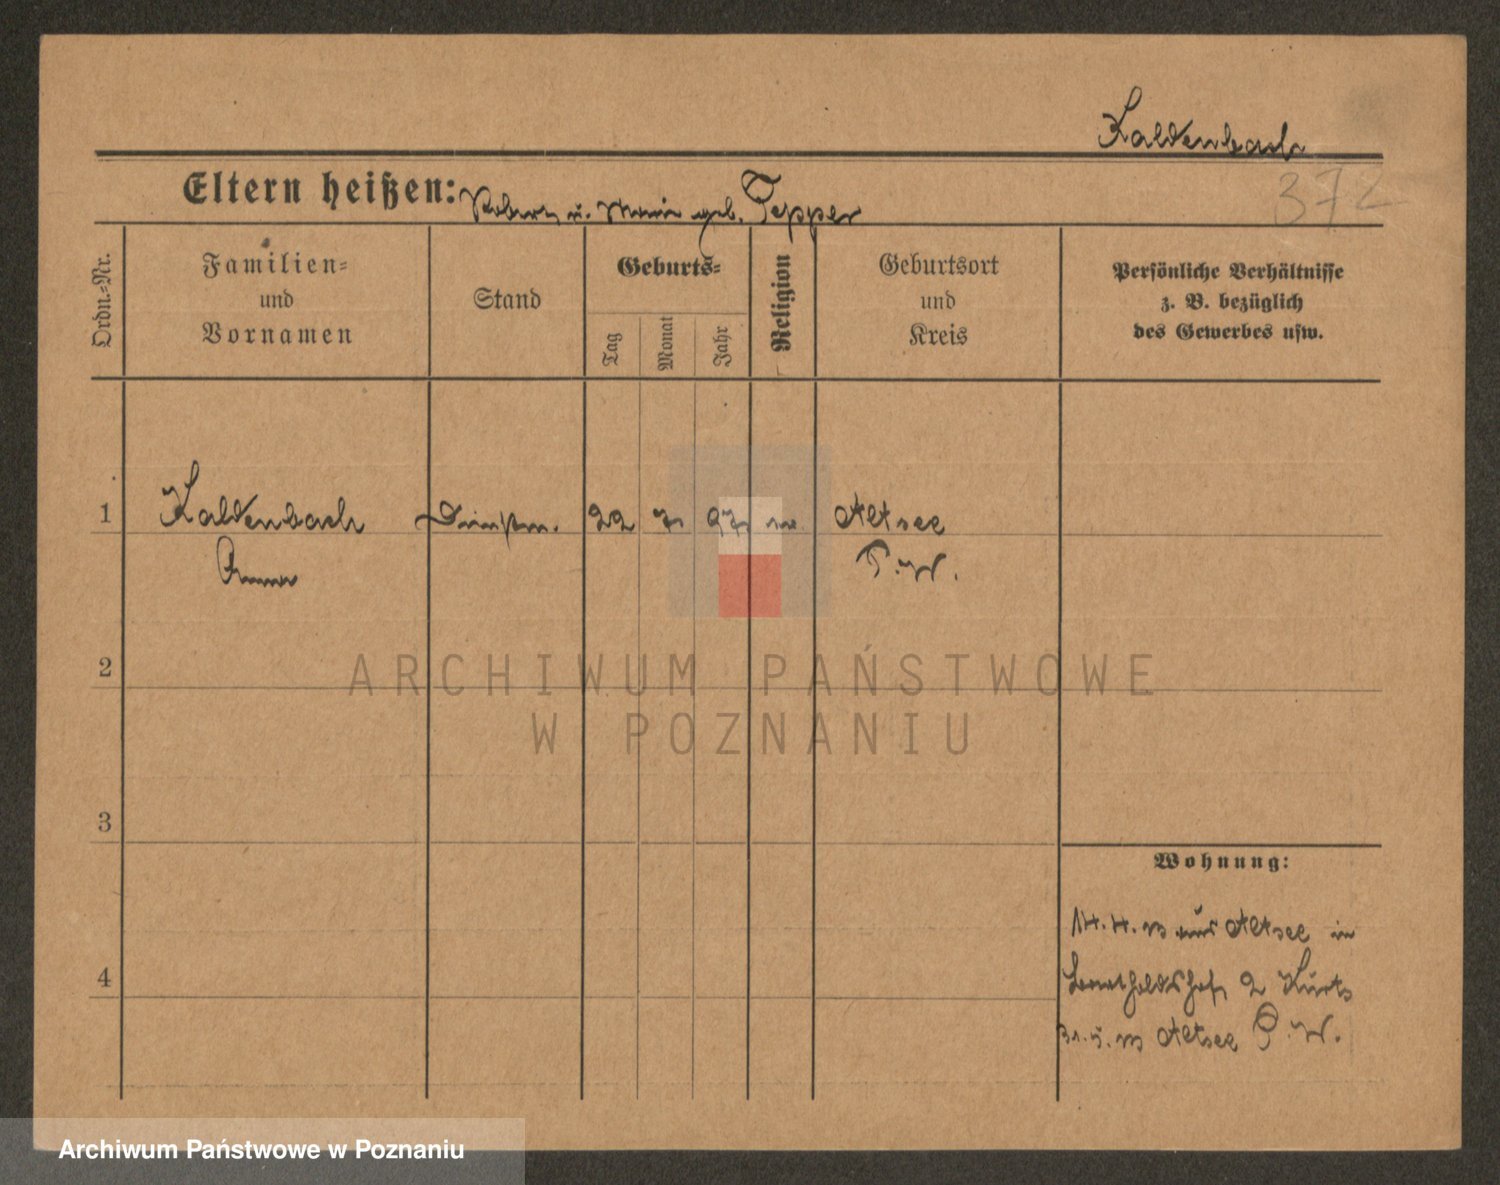 Kaldenbach
372
Eltern heißen: Robert u. Marie geb. Tepper
Ordn.-Nr.
Familien-
und
Vornamen
Stand
Geburts-
Tag
Monat
Jahr
Religion
Geburtsort
und
Kreis
Persönliche Verhältnisse
z. B. bezüglich
des Gewerbes usw.
1 Kaldenbach 22 7 97 Altsee
Anna P. W.
2
3
4
Wohnung:
14.4. aus Altsee in
2 Kurts
31.5. Altsee P. W.
ARCHIWUM PAŃSTWOWE
W POZNANIU
Archiwum Państwowe w Poznaniu